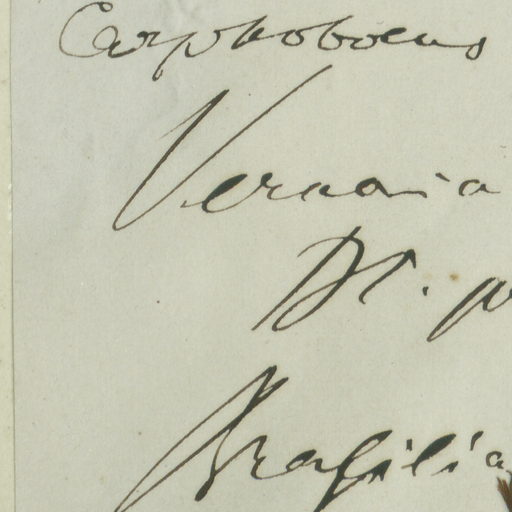 Carphobolus
Vernonia
DC. p
Brasilia